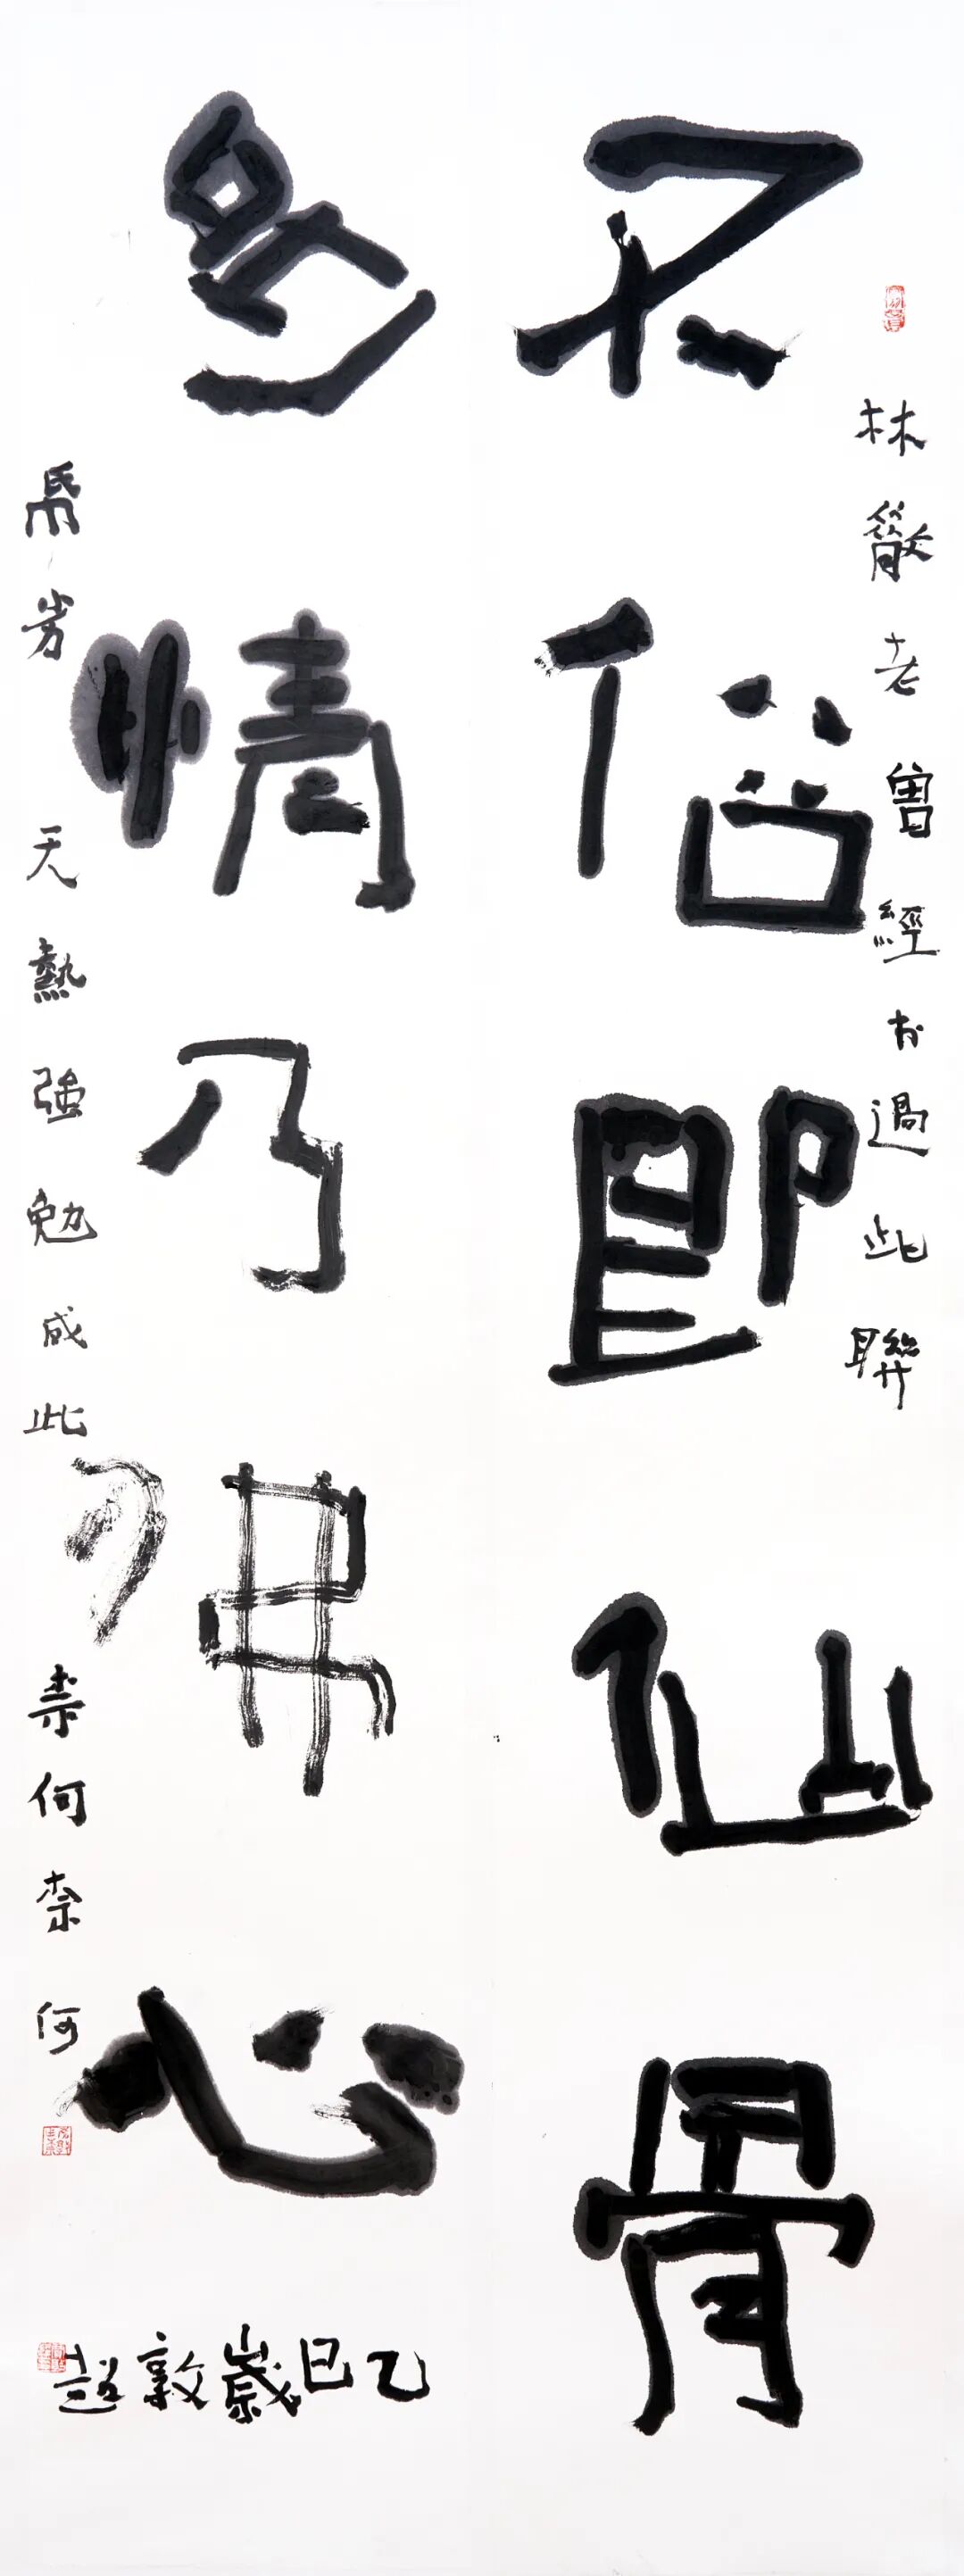 不俗即仙骨
多情乃佛心
林散老曾經書過此聯
天熱強勉成此
奈何奈何
乙巳歲敦趙